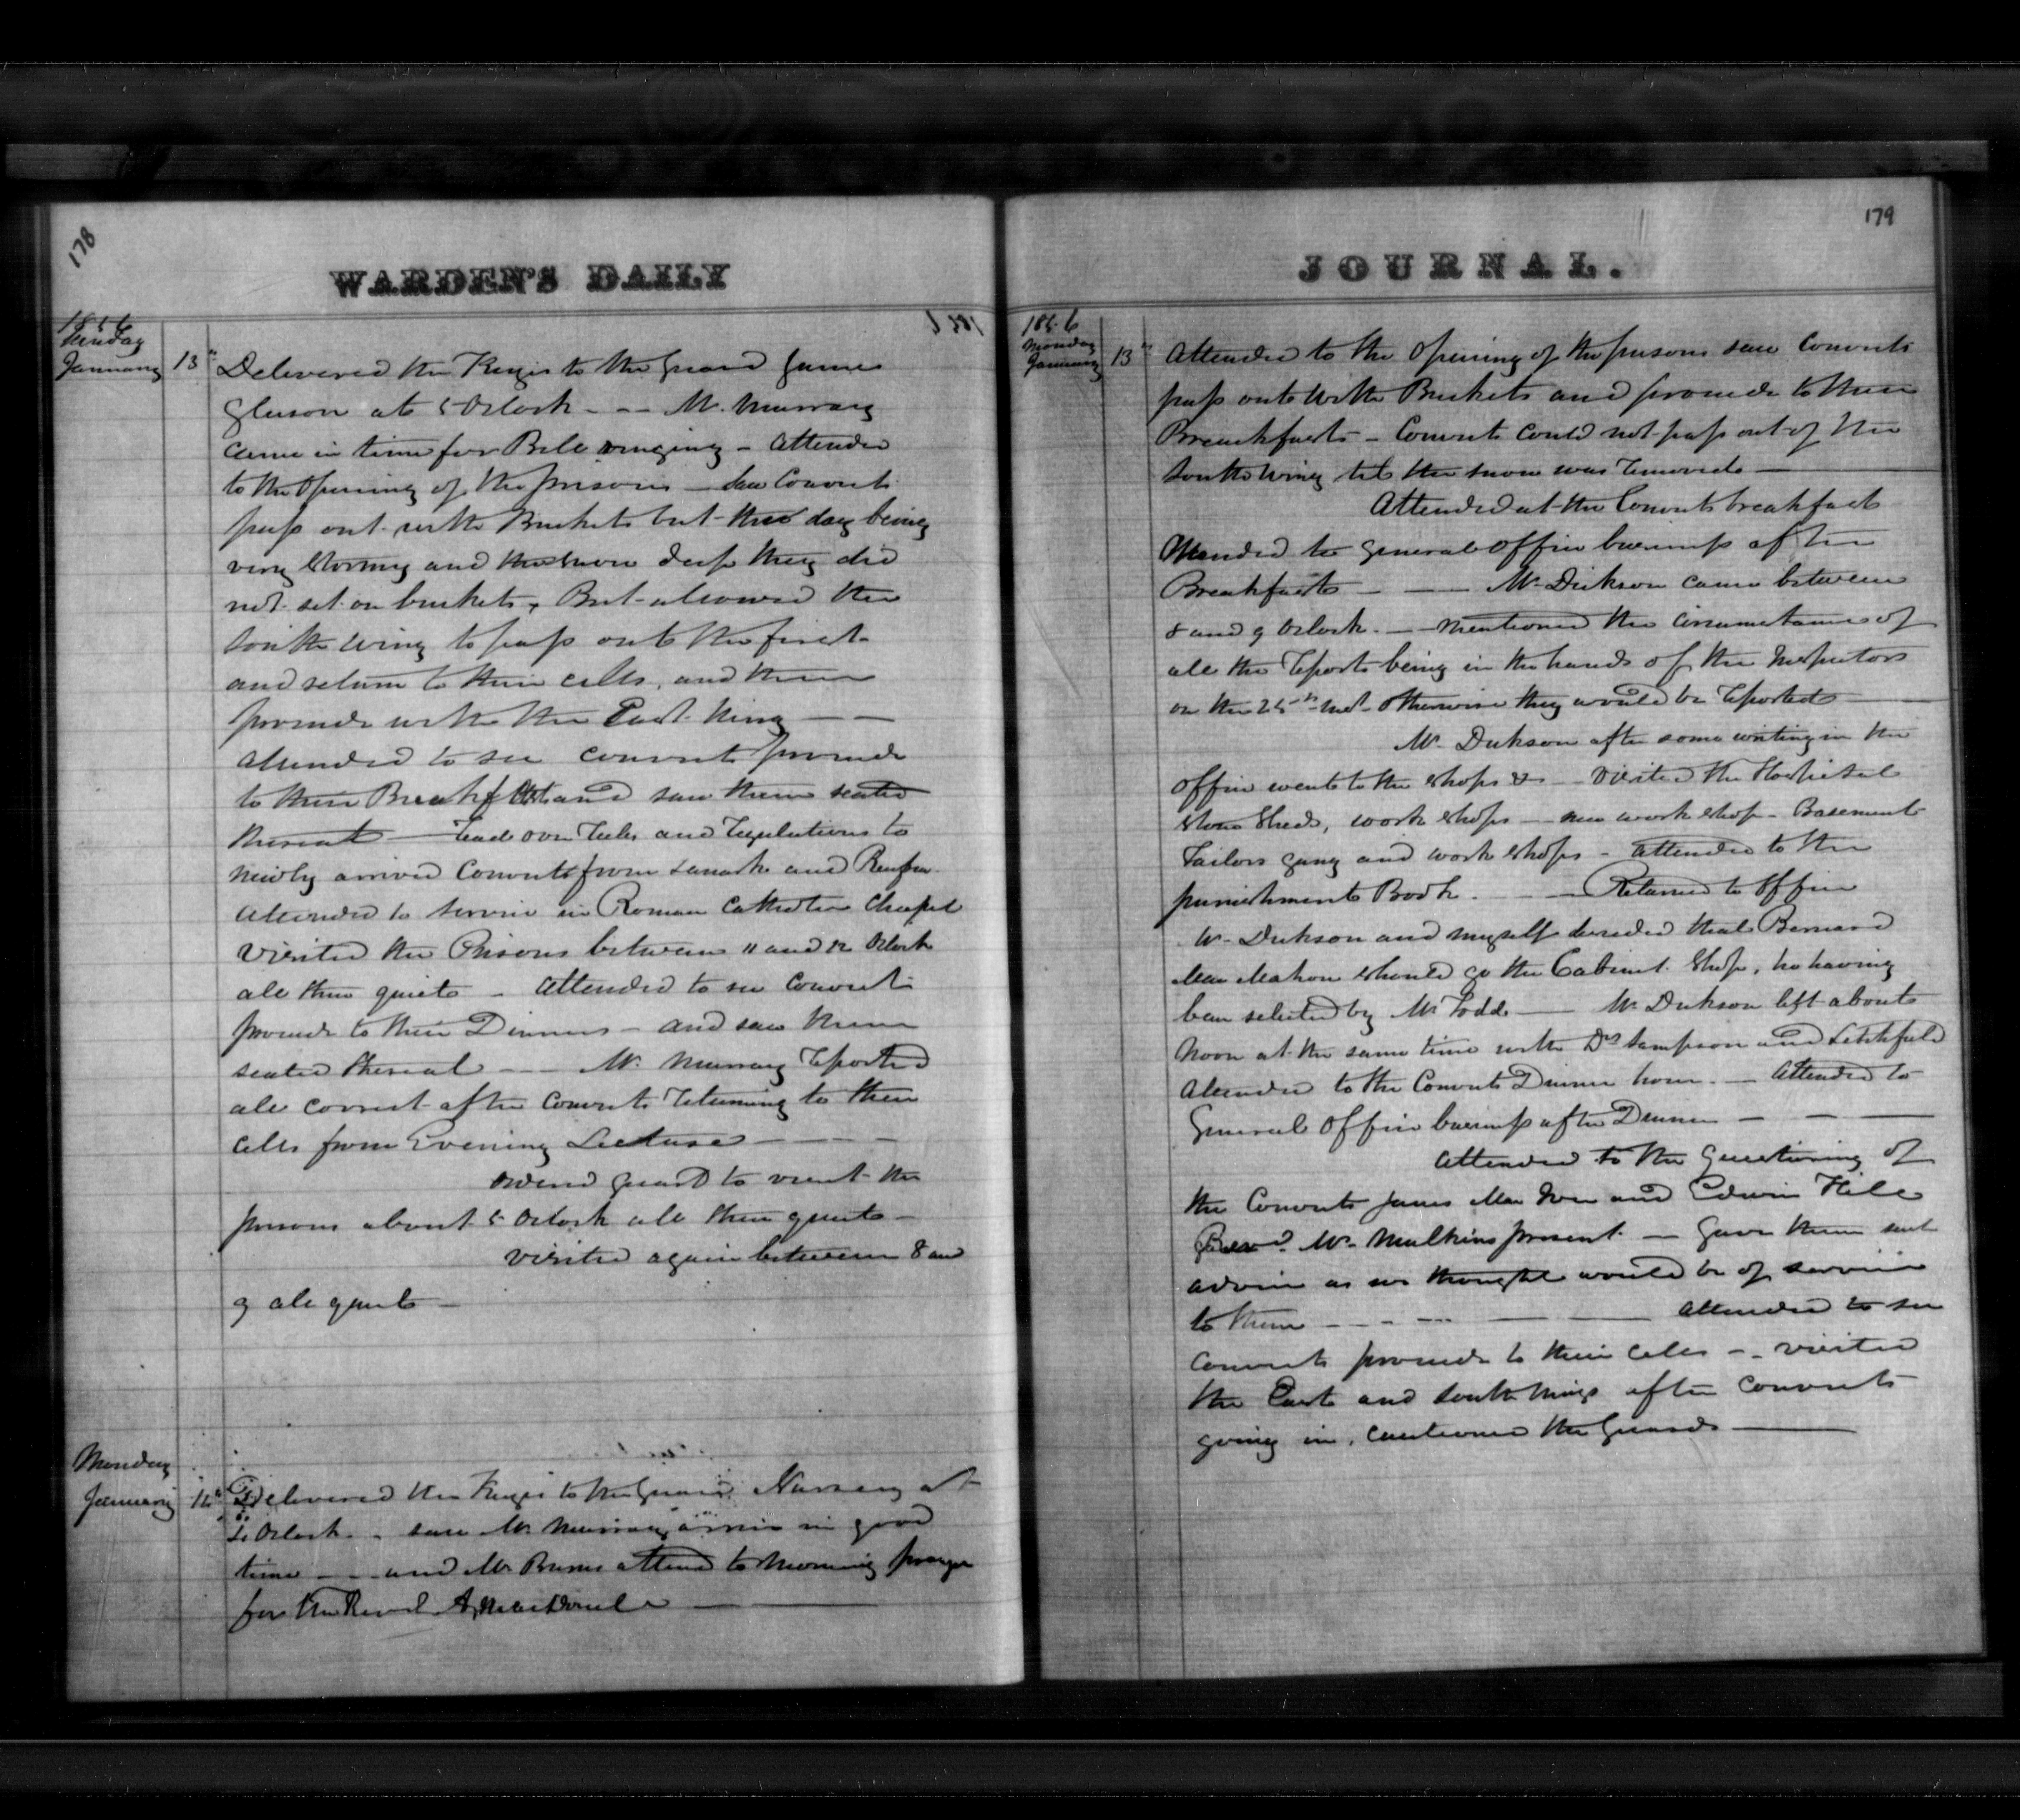 178
WARDEN'S DAILY
1856
Sunday
January 13th Delivered the Keys to the Guard James
Gleeson at 5 Oclock - - Mr. Murray
came in time for Bell ringing - Attended
to the Opening of the prisons - Saw Convicts
pass out with Buckets but the day being
very Stormy and the snow deep they did
not set on buckets, But allowed the
South wing to pass out the first
and return to their cells, and then
proceed with the East Wing - -
Attended to see convicts proceed
to their Breakfast and saw them seated
thereat - Read over Rules and Regulations to
newly arrived Convicts from Lanark and Renfrew
Attended to Service in Roman Catholic Chapel
Visited the Prisons between 11 and 12 Oclock
all then quiet - Attended to see Convicts
proceed to their Dinners - and saw them
seated thereat - - Mr. Murray Reported
all correct after Convicts Returning to their
Cells from Evening Lecture - - -
Ordered Guard to visit the
prisons about 5 Oclock all then quiet -
visited again between 8 and
9 all quiet -
Monday
January 14th Delivered the Keys to the Guard Nursey at
5 Oclock - saw Mr Murray arrive in good
time - - and Mr Burns attend to Morning prayer
for the Revd A, MacDonell -
179
JOURNAL.
1856
Monday
January 13th Attended to the Opening of the prisons saw Convicts
pass out with Buckets and proceed to their
Breackfasts - Convicts could not pass out of the
South Wing till the snow was Removed -
Attended at the Convicts breakfast
Attended to general Office business after
Breakfast - - Mr. Dickson came between
8 and 9 Oclock. - mentioned the circumstances of
all the Reports being in the hands of the Inspectors
on the 25th inst. otherwise they would be Reported -
Mr. Dickson after some writing in the
Office went to the shops & - Visited the Hospital
Stone Sheds, work shops - new work shop - Basement
Tailors gang and work shops - attended to the
punishment Book. - - Returned to Office
Mr. Dickson and myself decided that Bernard
MacMahon should go the Cabinet Shop, he having
been selected by Mr Todd - Mr Dickson left about
Noon at the same time with Drs Sampson and Litchfield
Attended to the Convicts Dinner hour. - Attended to
General Office business after Dinner - - -
Attended to the Questioning of
the Convicts James Mac and Edwin Hill
Revd. Mr. Mulkins present. - Gave them such
advice as we thought would be of service
to them - - - - Attended to see
Convicts proceed to their Cells - - visited
the East and South Wings after Convicts
going in, cautioned the Guards -